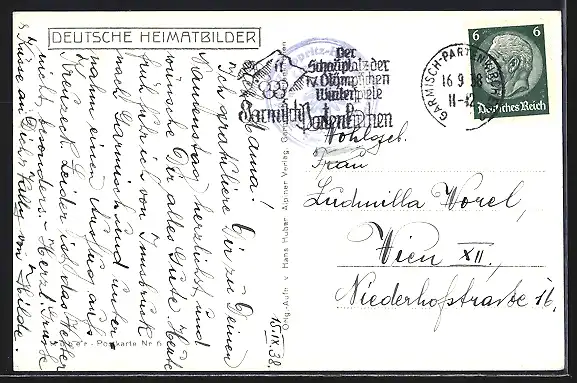 DEUTSCHE HEIMATBILDER
Der
Schauplatz der
IV. Olympischen
Winterspiele
Garmisch-
Partenkirchen
GARMISCH-PARTENKIRCHEN
16.9.38
11-12
6 6
Deutsches Reich
L. Mama!
Ich gratuliere Dir zu Deinem
Namenstag herzlichst und
wünsche Dir alles Gute. Heute
früh fuhr ich von Innsbruck
nach Garmisch und unter-
nahm einen Ausflug aufs
Kreuzeck. Leider ist das Wetter
nicht besonders. - Herzl. Grüsse
u. Küsse an Dich u. Vati von Hilde.
15.IX.38.
Orig.-Aufn. v. Hans Huber, Alpiner Verlag, Garmisch-Partenkirchen
Postkarte Nr. 6
Wohlgeb.
Frau
Ludmilla Worel,
Wien XII.,
Niederhofstrasse 16.